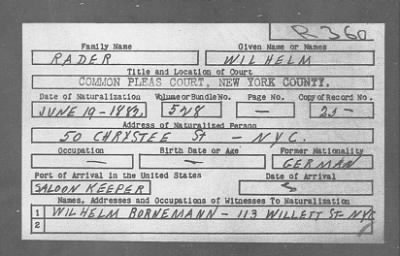 R360
Family Name Given Name or Names
RADER WILHELM
Title and Location of Court
COMMON PLEAS COURT, NEW YORK COUNTY.
Date of Naturalization Volume or Bundle No. Page No. Copy of Record No.
JUNE 19-1882. 528 — 25-
Address of Naturalized Person
50 CHRYSTEE St - N.Y.C.
Occupation Birth Date or Age Former Nationality
— — GERMAN
Port of Arrival in the United States Date of Arrival
SALOON KEEPER
Names, Addresses and Occupations of Witnesses To Naturalization
1 WILHELM BORNEMANN - 113 WILLETT St- NYC
2